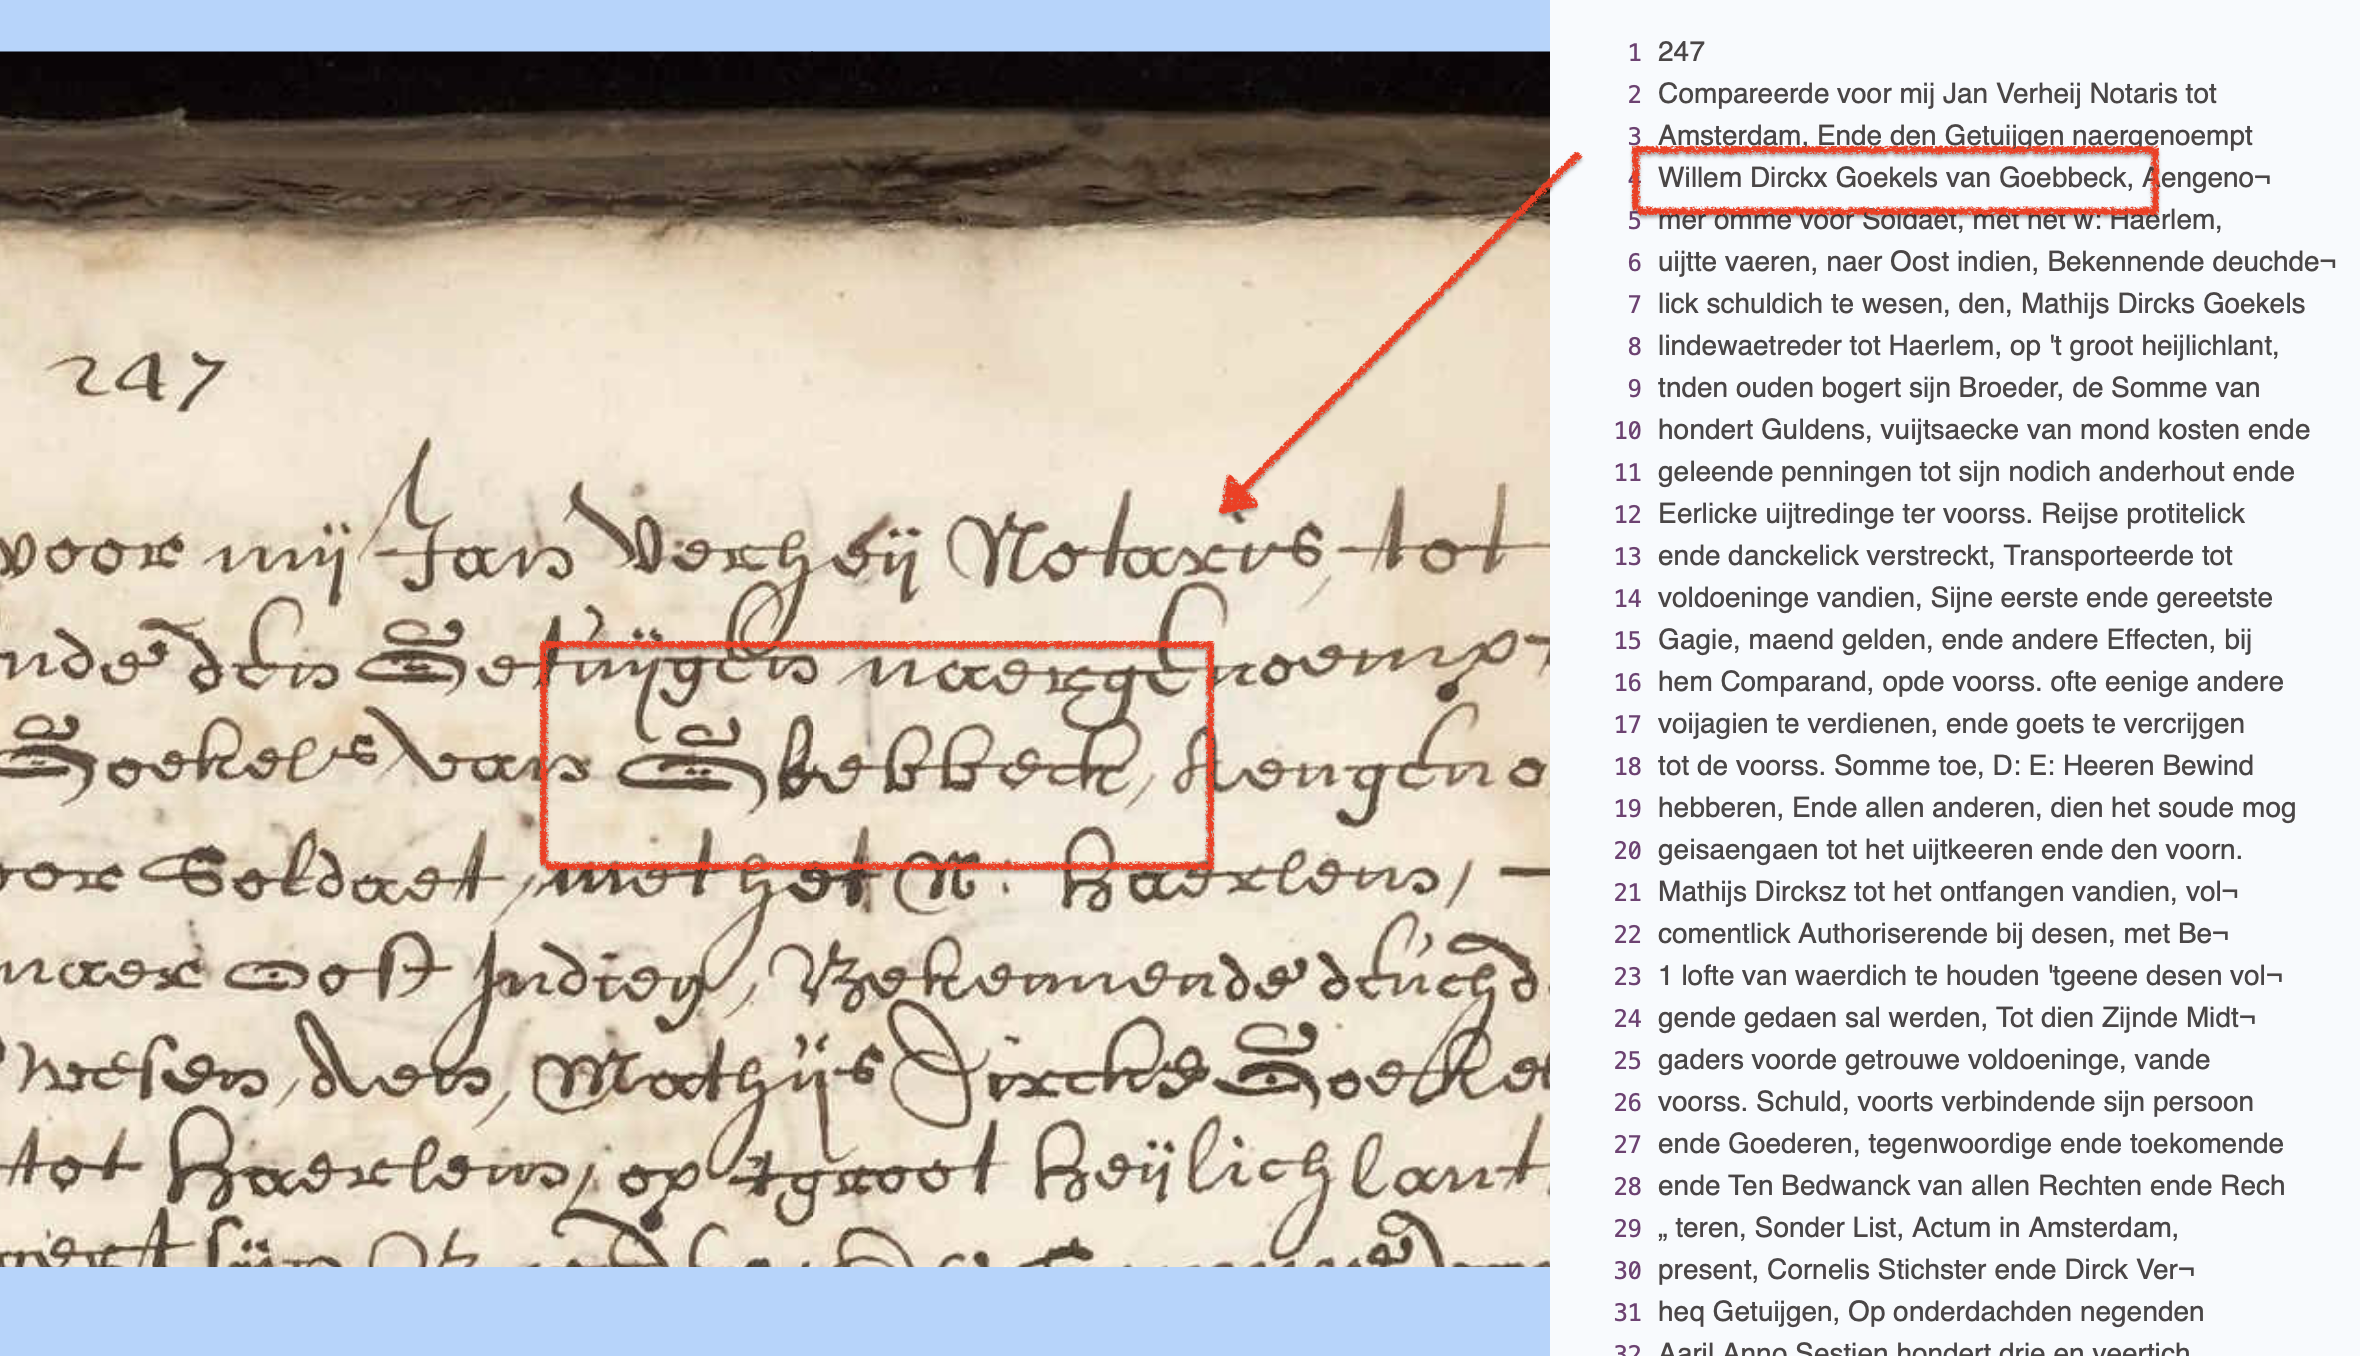 247
voor mij Jan Verheij Notaris, tot
nde den Getuijgen naergenoempt
Goekels van Gbebbeck, Aengeno
oor Soldaet, met het W: Haerlem,
naer Oost Indien, Bekennende deuchd
wesen, den, Mathijs Dircks Goekel
tot Haerlem, op 't groot heijlichlant
1 247
2 Compareerde voor mij Jan Verheij Notaris tot
3 Amsterdam, Ende den Getuijgen naergenoempt
4 Willem Dirckx Goekels van Goebbeck, Aengeno¬
5 mer omme voor Soldaet, met het w: Haerlem,
6 uijtte vaeren, naer Oost indien, Bekennende deuchde¬
7 lick schuldich te wesen, den, Mathijs Dircks Goekels
8 lindewaetreder tot Haerlem, op 't groot heijlichlant,
9 tnden ouden bogert sijn Broeder, de Somme van
10 hondert Guldens, vuijtsaecke van mond kosten ende
11 geleende penningen tot sijn nodich anderhout ende
12 Eerlicke uijtredinge ter voorss. Reijse protitelick
13 ende danckelick verstreckt, Transporteerde tot
14 voldoeninge vandien, Sijne eerste ende gereetste
15 Gagie, maend gelden, ende andere Effecten, bij
16 hem Comparand, opde voorss. ofte eenige andere
17 voijagien te verdienen, ende goets te vercrijgen
18 tot de voorss. Somme toe, D: E: Heeren Bewind
19 hebberen, Ende allen anderen, dien het soude mog
20 geisaengaen tot het uijtkeeren ende den voorn.
21 Mathijs Dircksz tot het ontfangen vandien, vol¬
22 comentlick Authoriserende bij desen, met Be¬
23 1 lofte van waerdich te houden 'tgeene desen vol¬
24 gende gedaen sal werden, Tot dien Zijnde Midt¬
25 gaders voorde getrouwe voldoeninge, vande
26 voorss. Schuld, voorts verbindende sijn persoon
27 ende Goederen, tegenwoordige ende toekomende
28 ende Ten Bedwanck van allen Rechten ende Rech
29 „ teren, Sonder List, Actum in Amsterdam,
30 present, Cornelis Stichster ende Dirck Ver¬
31 heq Getuijgen, Op onderdachden negenden
32 Aaril Anno Sestien hondert drie en veertich